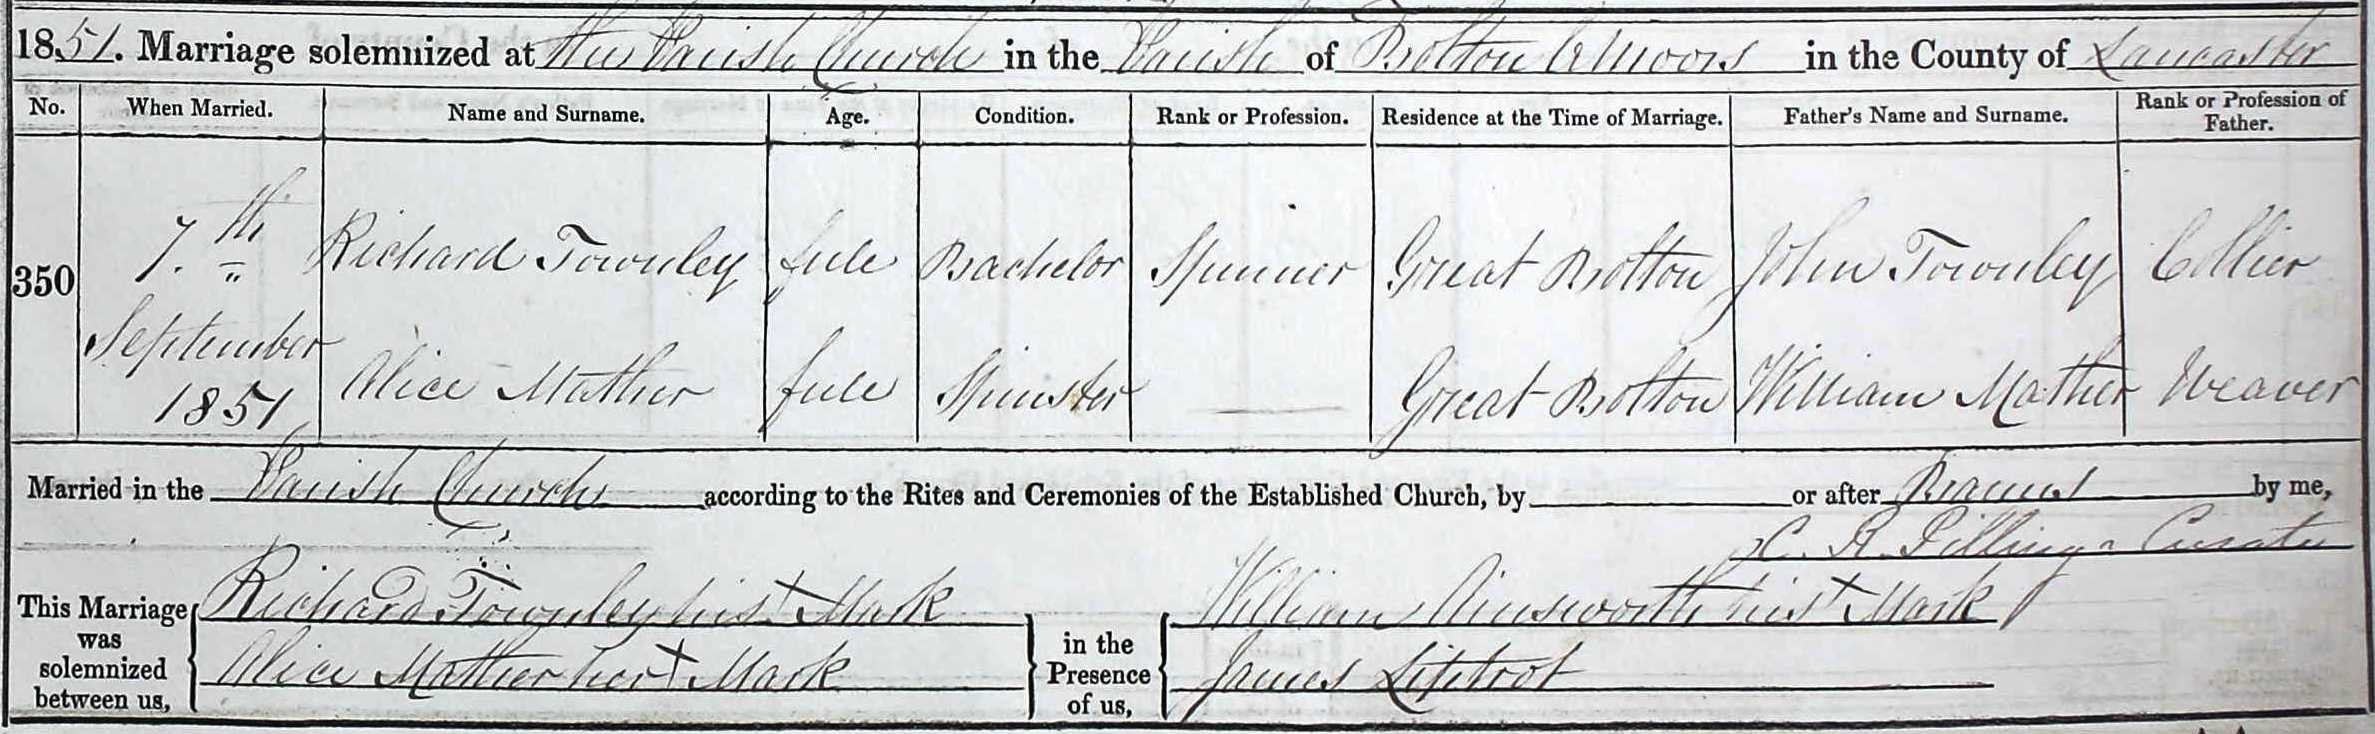 1851. Marriage solemnized at the Parish Church in the Parish of Bolton le Moors in the County of Lancaster
No. When Married. Name and Surname. Age. Condition. Rank or Profession. Residence at the Time of Marriage. Father's Name and Surname. Rank or Profession of Father.
350 7.th September 1851 Richard Townley full Bachelor Spinner Great Bolton John Townley Collier
Alice Mather full Spinster Great Bolton William Mather Weaver
Married in the Parish Church according to the Rites and Ceremonies of the Established Church, by or after Banns by me,
C. R. Pilling Curate
This Marriage was solemnized between us, Richard Townley his X Mark in the Presence of us, William Ainsworth his X Mark
Alice Mather her X Mark James Liptrot